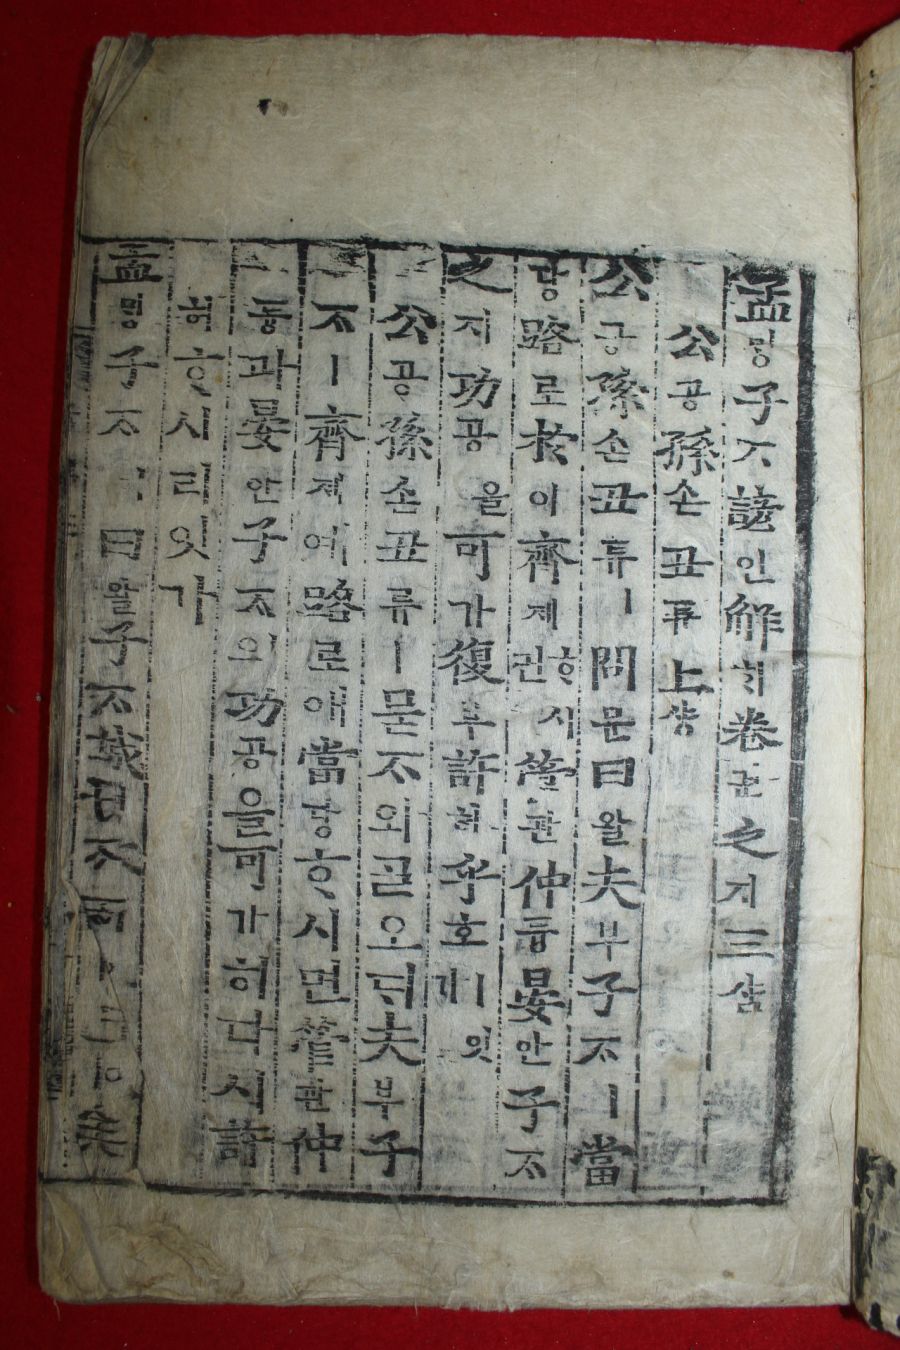 孟ᄆᆡᆼ子ᄌᆞ諺언解ᄒᆡ卷권之지三삼
公공孫손丑츄上샹
公공孫손丑츄ㅣ問문曰왈夫부子ᄌᆞㅣ當
당路로於어齊제ᄒᆞ시면管관仲듕晏안子ᄌᆞ
之지功공을可가復부許허乎호ㅣ잇가
公공孫손丑츄ㅣ묻ᄌᆞ와ᄀᆞᆯ오ᄃᆡ夫부子
ᄌᆞㅣ齊제예路로애當당ᄒᆞ시면管관仲
듕과晏안子ᄌᆞ의功공을可가히다시許
허ᄒᆞ시리잇가
孟ᄆᆡᆼ子ᄌᆞㅣ曰왈子ᄌᆞ誠